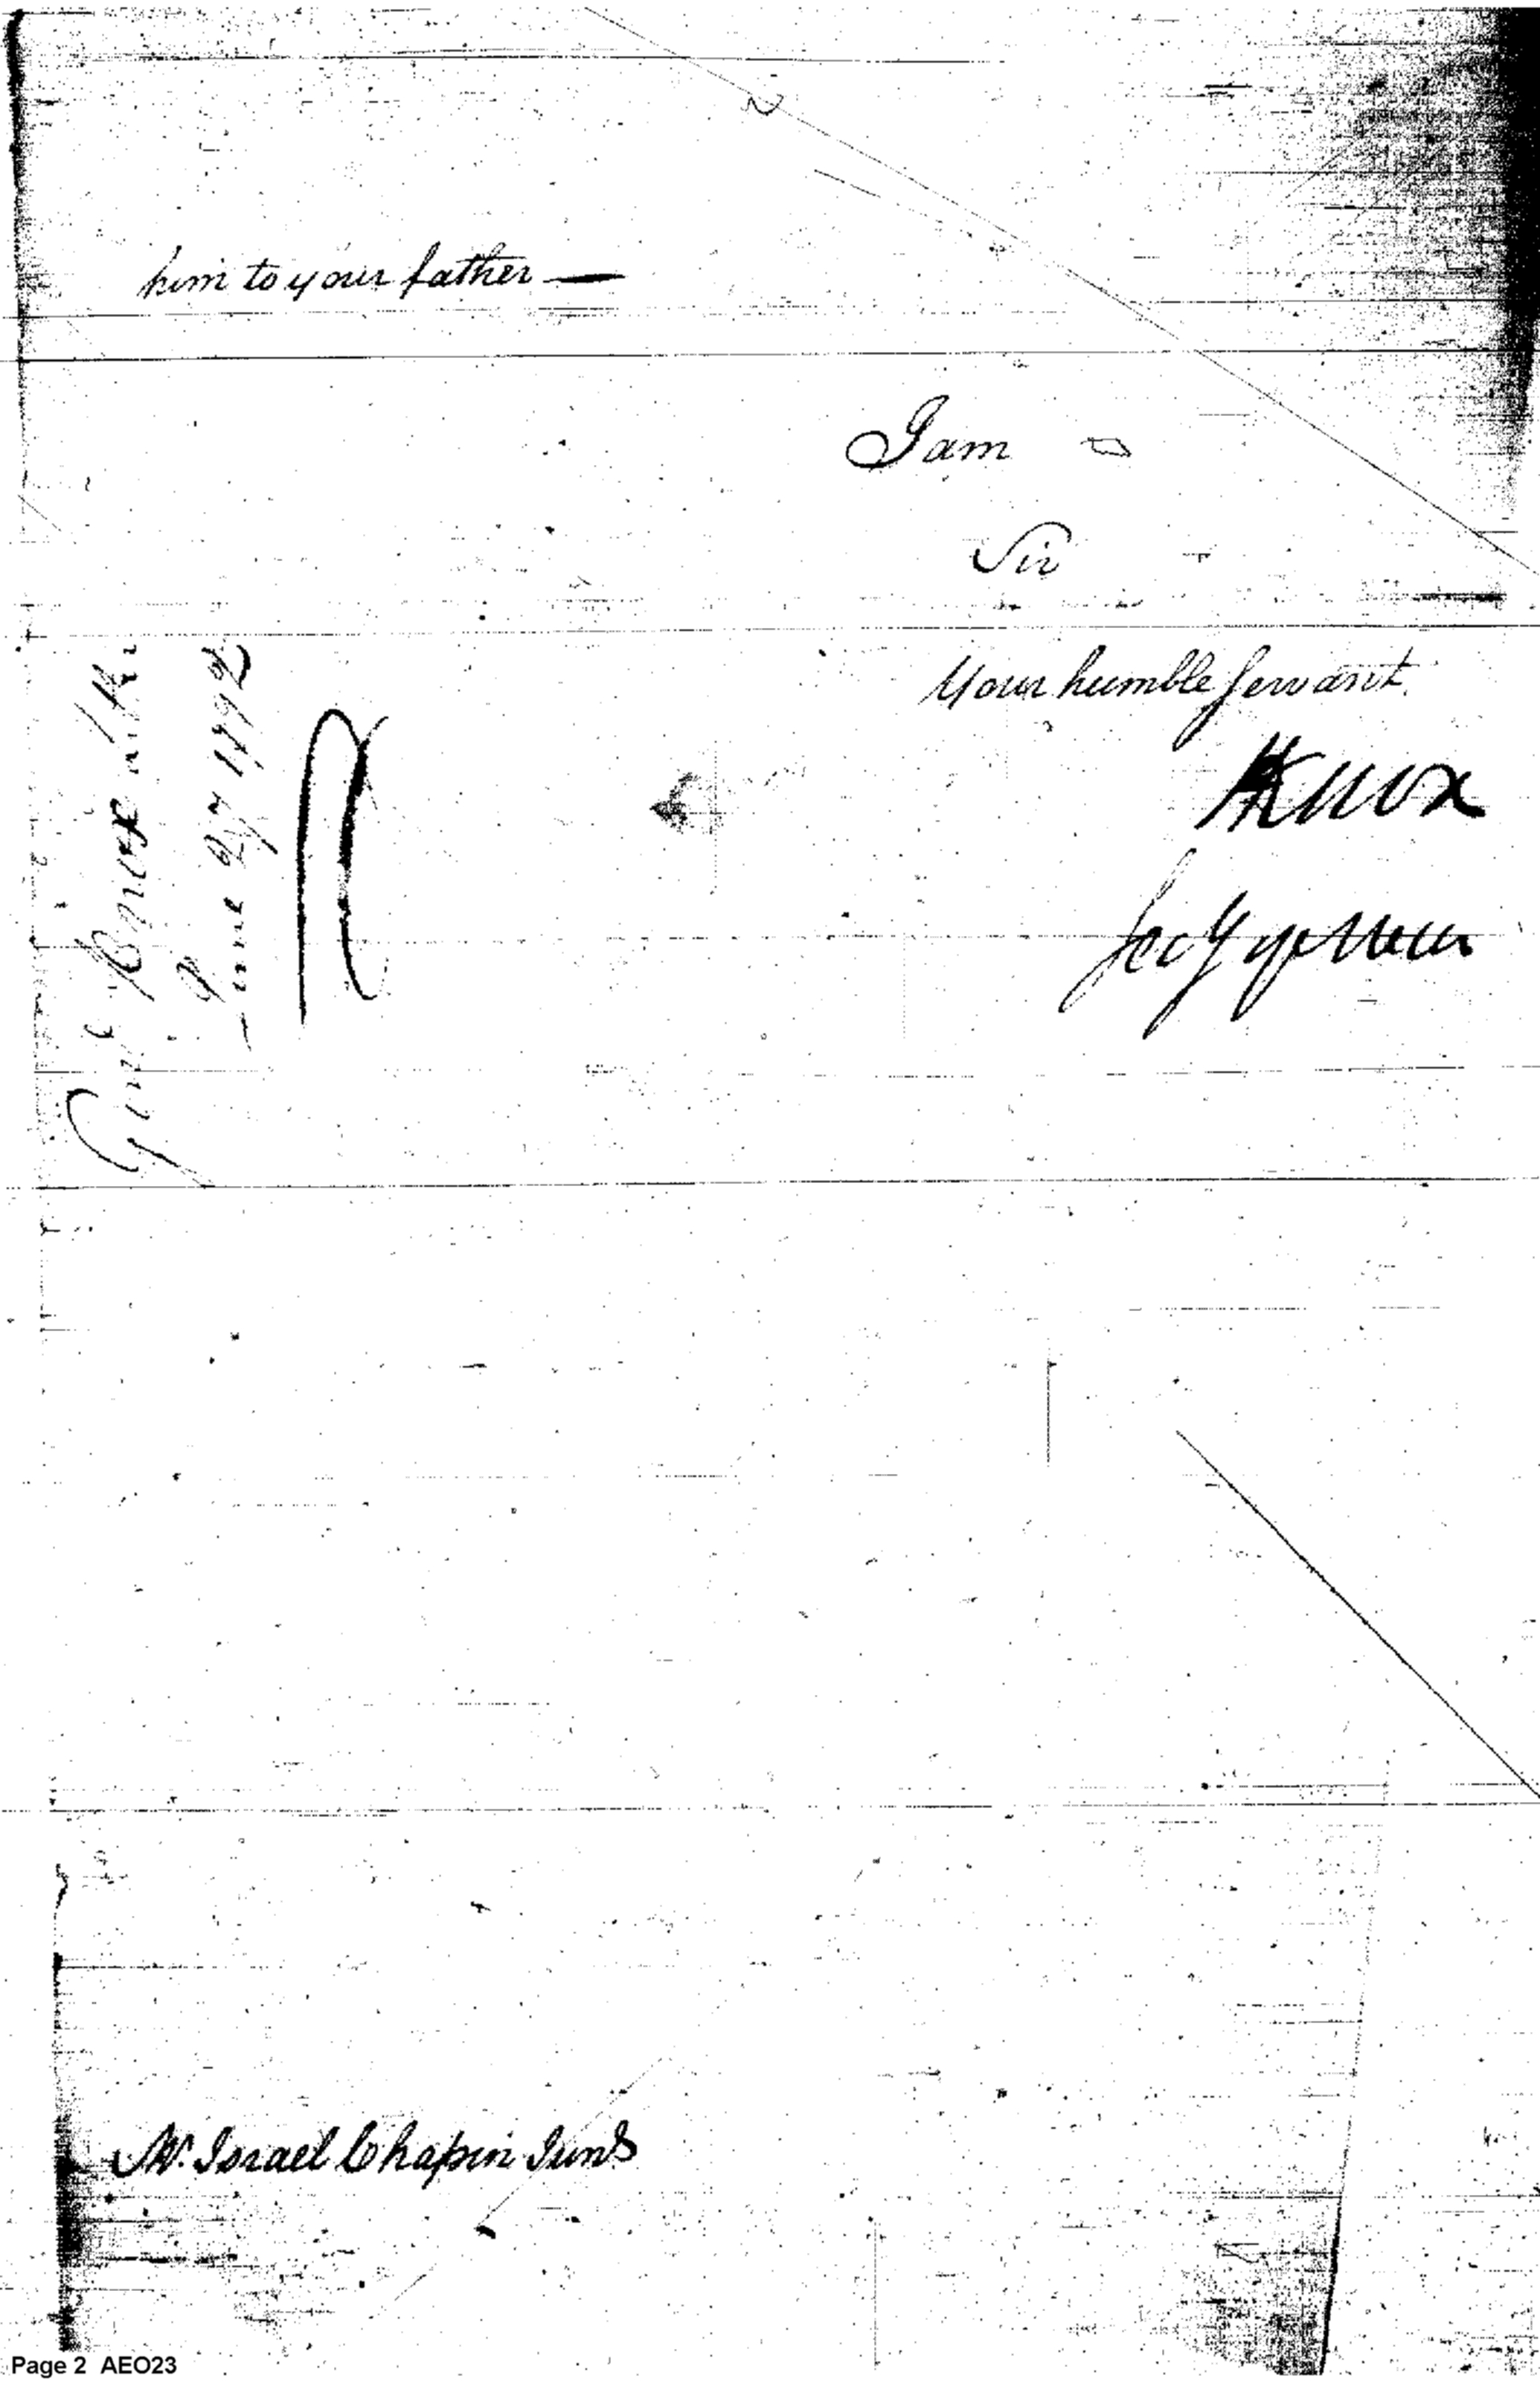 him to your father —
I am
Sir
Your humble Servant.
HKnox
Secy of War
Genl Knox letter
June 27 1792
Mr. Israel Chapin Junr
Page 2 AEO23